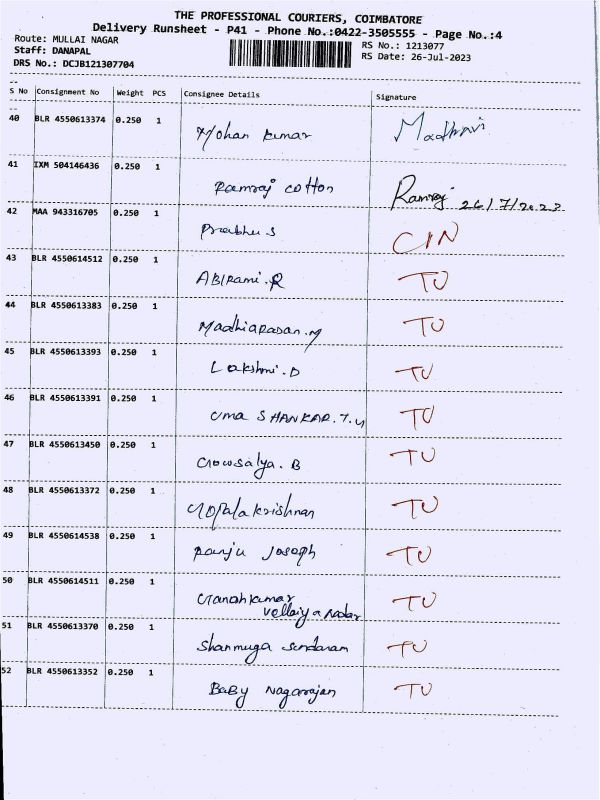 THE PROFESSIONAL COURIERS, COIMBATORE
Delivery Runsheet - P41 - Phone No.:0422-3505555 - Page No.:4
Route: MULLAI NAGAR RS No.: 1213077
Staff: DANAPAL RS Date: 26-Jul-2023
DRS No.: DCJB121307704
S No Consignment No Weight PCS Consignee Details Signature
40 BLR 4550613374 0.250 1 Mohan kumar Madhavi
41 IXM 504146436 0.250 1 Ramraj cotton Ramraj 26/7/2023
42 MAA 943316705 0.250 1 Prabhu S CIN
43 BLR 4550614512 0.250 1 ABIRami.R TU
44 BLR 4550613383 0.250 1 Madhiarasan.M TU
45 BLR 4550613393 0.250 1 Lakshmi.D TU
46 BLR 4550613391 0.250 1 Uma SHANKAR.T.U TU
47 BLR 4550613450 0.250 1 Gowsalya.B TU
48 BLR 4550613372 0.250 1 Gopalakrishnan TU
49 BLR 4550614538 0.250 1 Ranju Joseph TU
50 BLR 4550614511 0.250 1 Ganesh kumar TU
vellaiya Nadar
51 BLR 4550613370 0.250 1 Shanmuga Sundaram TU
52 BLR 4550613352 0.250 1 BaBy Nagarajan TU